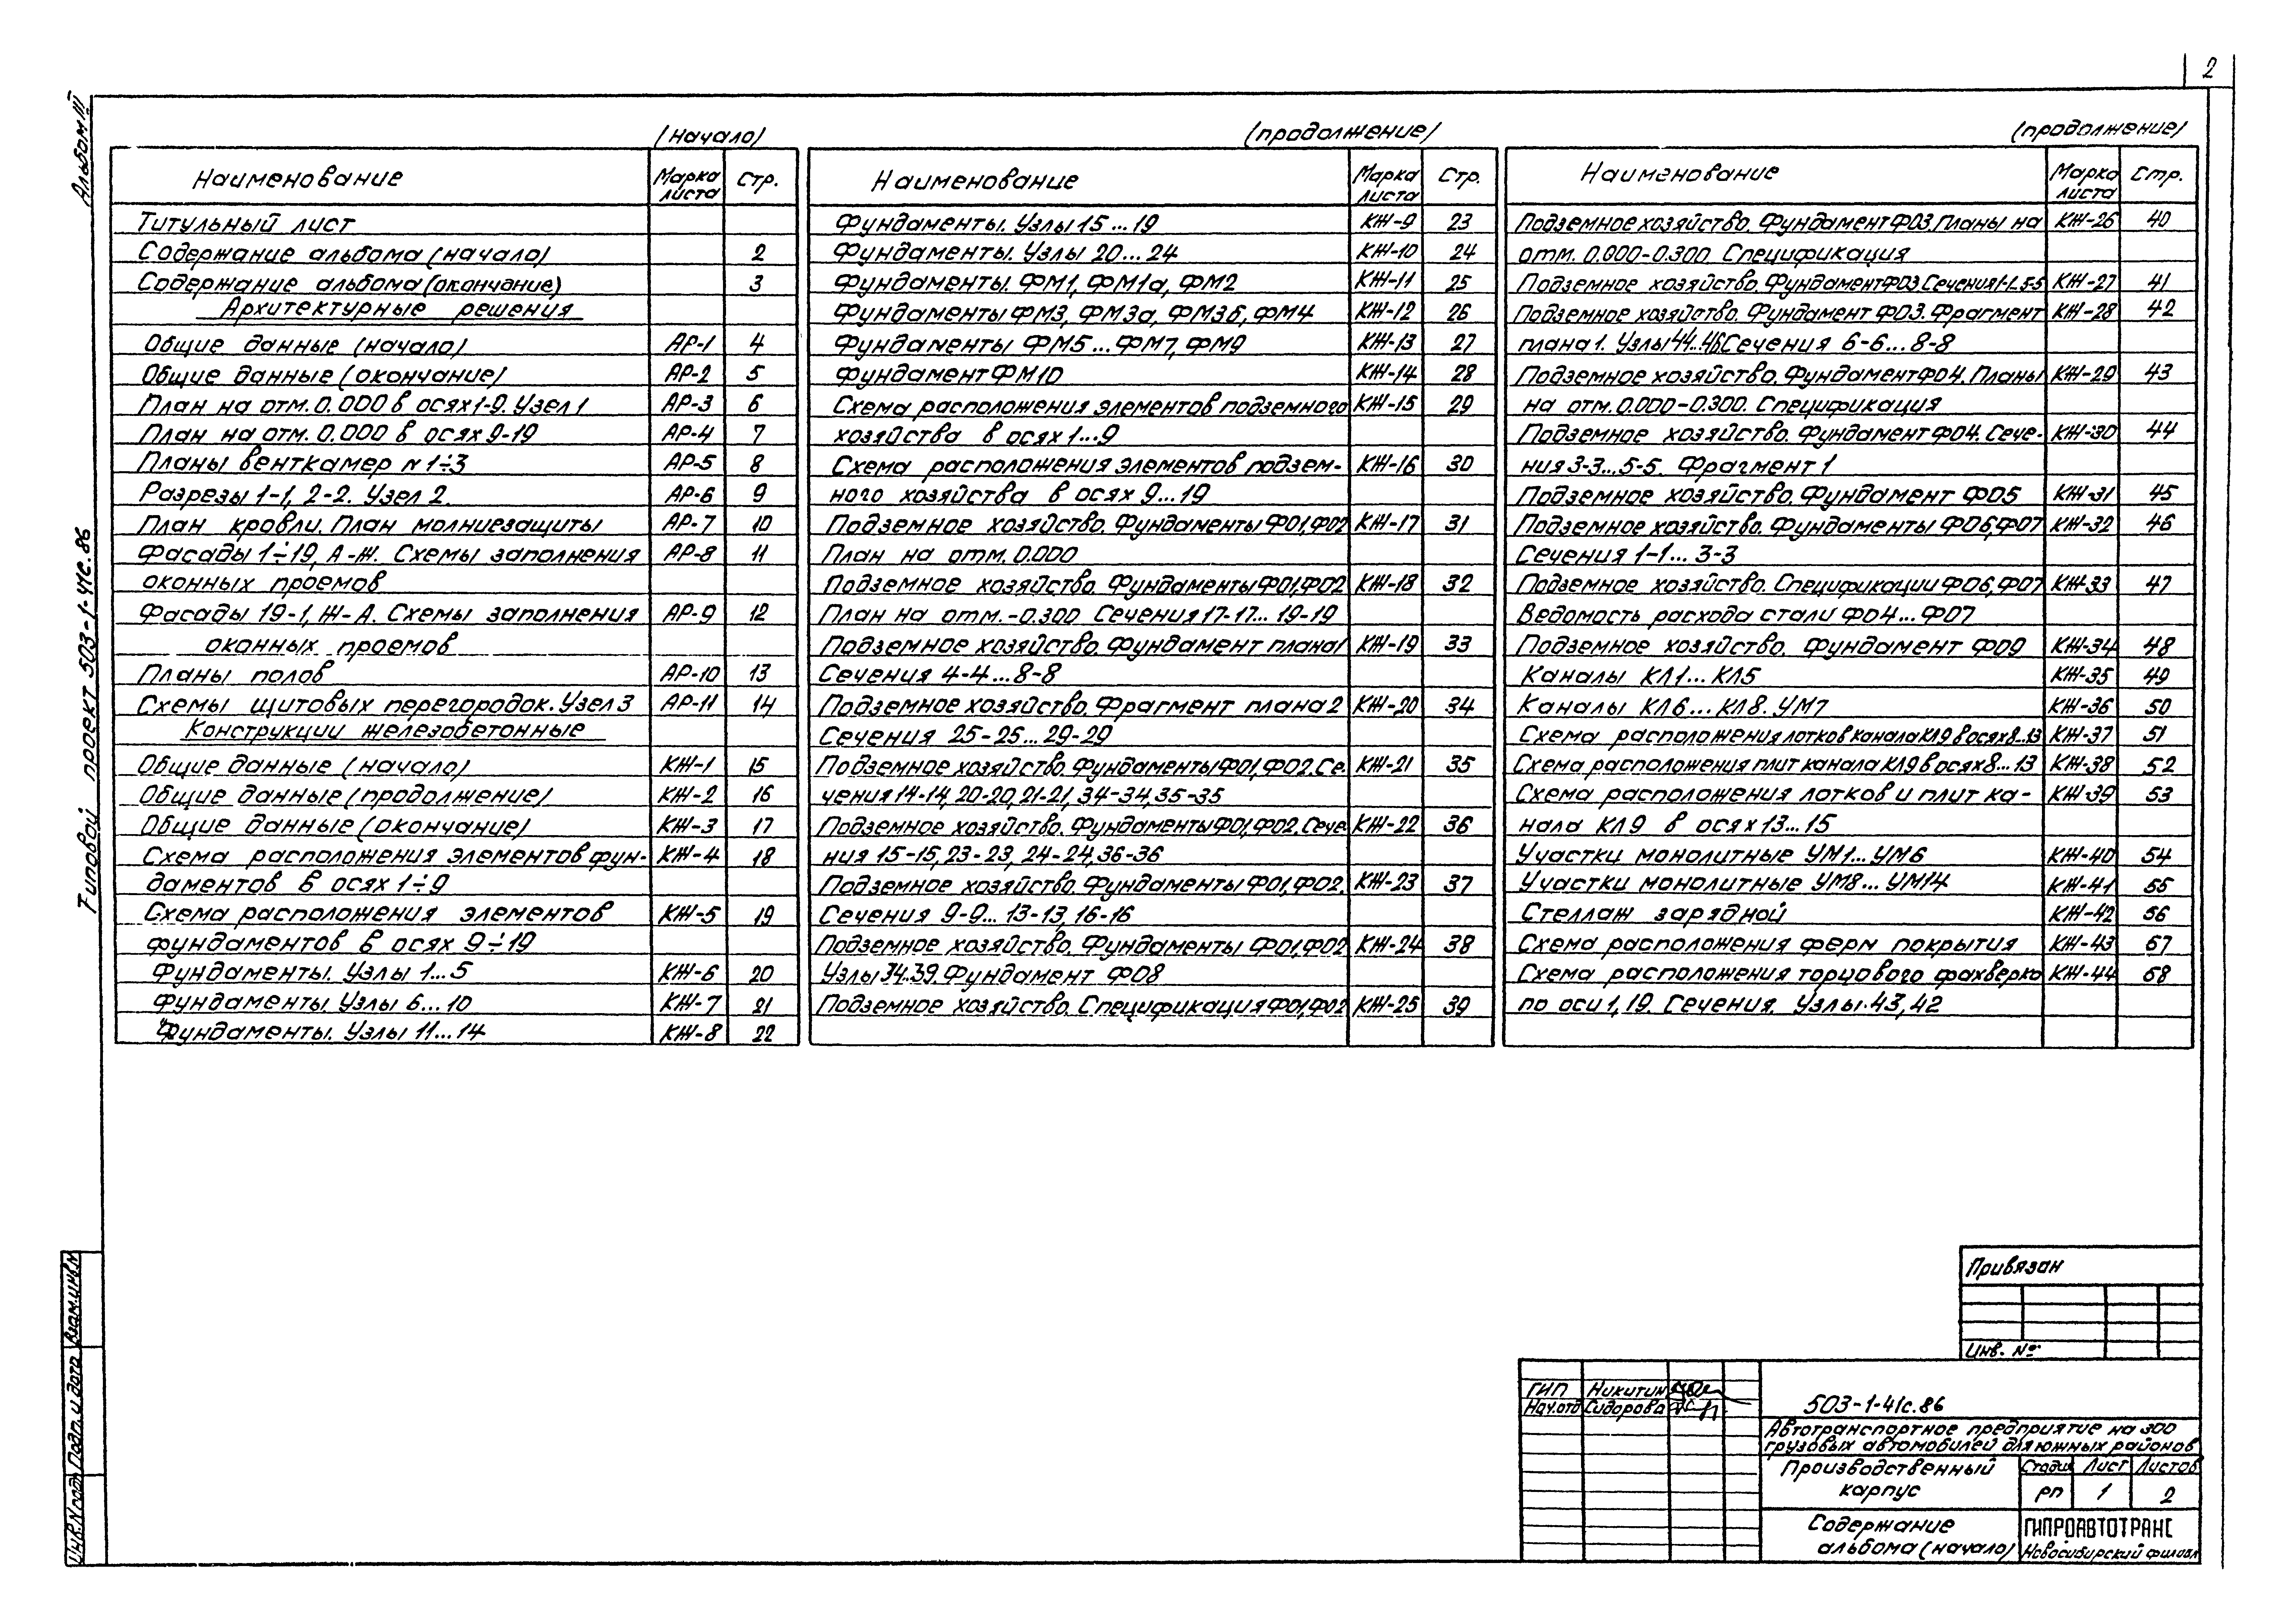 2
Альбом III
Типовой проект 503-1-41с.86
(начало)
Наименование Марка листа Стр.
Титульный лист
Содержание альбома (начало) 2
Содержание альбома (окончание) 3
Архитектурные решения
Общие данные (начало) АР-1 4
Общие данные (окончание) АР-2 5
План на отм. 0.000 в осях 1-9. Узел 1 АР-3 6
План на отм. 0.000 в осях 9-19 АР-4 7
Планы венткамер N 1÷3 АР-5 8
Разрезы 1-1, 2-2. Узел 2. АР-6 9
План кровли. План молниезащиты АР-7 10
Фасады 1÷19, А-Ж. Схемы заполнения АР-8 11
оконных проемов
Фасады 19-1, Ж-А. Схемы заполнения АР-9 12
оконных проемов
Планы полов АР-10 13
Схемы щитовых перегородок. Узел 3 АР-11 14
Конструкции железобетонные
Общие данные (начало) КЖ-1 15
Общие данные (продолжение) КЖ-2 16
Общие данные (окончание) КЖ-3 17
Схема расположения элементов фун- КЖ-4 18
даментов в осях 1÷9
Схема расположения элементов КЖ-5 19
фундаментов в осях 9÷19
Фундаменты. Узлы 1...5 КЖ-6 20
Фундаменты. Узлы 6...10 КЖ-7 21
Фундаменты. Узлы 11...14 КЖ-8 22
(продолжение)
Наименование Марка листа Стр.
Фундаменты. Узлы 15...19 КЖ-9 23
Фундаменты. Узлы 20...24 КЖ-10 24
Фундаменты. ФМ1, ФМ1а, ФМ2 КЖ-11 25
Фундаменты ФМ3, ФМ3а, ФМ3б, ФМ4 КЖ-12 26
Фундаменты ФМ5...ФМ7, ФМ9 КЖ-13 27
Фундамент ФМ10 КЖ-14 28
Схема расположения элементов подземного КЖ-15 29
хозяйства в осях 1...9
Схема расположения элементов подзем- КЖ-16 30
ного хозяйства в осях 9...19
Подземное хозяйство. Фундаменты Ф01, Ф02 КЖ-17 31
План на отм. 0.000
Подземное хозяйство. Фундаменты Ф01, Ф02 КЖ-18 32
План на отм. -0.300 Сечения 17-17... 19-19
Подземное хозяйство. Фундамент плана 1 КЖ-19 33
Сечения 4-4...8-8
Подземное хозяйство. Фрагмент плана 2 КЖ-20 34
Сечения 25-25...29-29
Подземное хозяйство. Фундаменты Ф01, Ф02. Се- КЖ-21 35
чения 14-14, 20-20, 21-21, 34-34, 35-35
Подземное хозяйство. Фундаменты Ф01, Ф02. Сече- КЖ-22 36
ния 15-15, 23-23, 24-24, 36-36
Подземное хозяйство. Фундаменты Ф01, Ф02. КЖ-23 37
Сечения 9-9... 13-13, 16-16
Подземное хозяйство. Фундаменты Ф01, Ф02 КЖ-24 38
Узлы 34..39. Фундамент Ф08
Подземное хозяйство. Спецификация Ф01, Ф02 КЖ-25 39
(продолжение)
Наименование Марка листа Стр.
Подземное хозяйство. Фундамент Ф03. Планы на КЖ-26 40
отм. 0.000-0.300. Спецификация
Подземное хозяйство. Фундамент Ф03. Сечения 1-1..5-5 КЖ-27 41
Подземное хозяйство. Фундамент Ф03. Фрагмент КЖ-28 42
плана 1. Узлы 44..46. Сечения 6-6...8-8
Подземное хозяйство. Фундамент Ф04. Планы КЖ-29 43
на отм. 0.000-0.300. Спецификация
Подземное хозяйство. Фундамент Ф04. Сече- КЖ-30 44
ния 3-3...5-5. Фрагмент 1
Подземное хозяйство. Фундамент Ф05 КЖ-31 45
Подземное хозяйство. Фундаменты Ф06, Ф07 КЖ-32 46
Сечения 1-1... 3-3
Подземное хозяйство. Спецификации Ф06, Ф07 КЖ-33 47
Ведомость расхода стали Ф04...Ф07
Подземное хозяйство. Фундамент Ф09 КЖ-34 48
Каналы КЛ1...КЛ5 КЖ-35 49
Каналы КЛ6...КЛ8. УМ7 КЖ-36 50
Схема расположения лотков канала КЛ9 в осях 8...13 КЖ-37 51
Схема расположения плит канала КЛ9 в осях 8...13 КЖ-38 52
Схема расположения лотков и плит ка- КЖ-39 53
нала КЛ9 в осях 13...15
Участки монолитные УМ1...УМ6 КЖ-40 54
Участки монолитные УМ8...УМ14 КЖ-41 55
Стеллаж зарядной КЖ-42 56
Схема расположения ферм покрытия КЖ-43 67
Схема расположения торцового фахверка КЖ-44 68
по оси 1, 19. Сечения. Узлы 43, 42
Привязан
Инв. №
ГИП Никитин
Нач.отд Сидорова
503-1-41с.86
Автотранспортное предприятие на 300
грузовых автомобилей для южных районов
Производственный корпус
Стадия Лист Листов
РП 1 2
Содержание
альбома (начало)
ГИПРОАВТОТРАНС
Новосибирский филиал
Инв.№подл. Подп. и дата Взам.инв.№